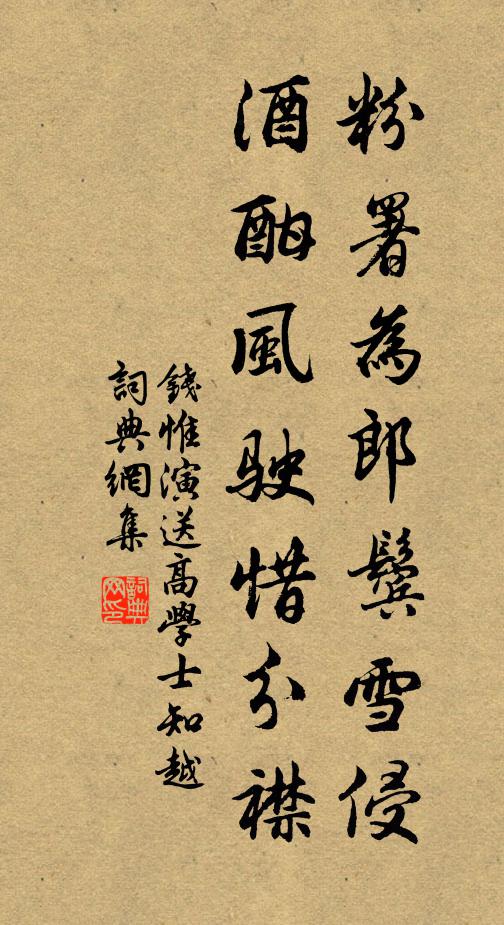 粉署為郎鬓雪侵
酒酣風駛惜分襟
錢惟演送高學士知越
詞典網集
詞典网印